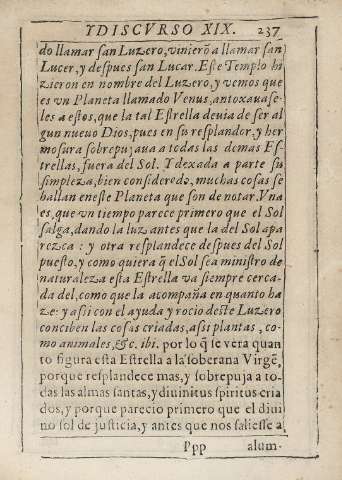 YDISCVRSO XIX. 237
do llamar ſan Luzero, vinierõ a llamar ſan
Lucer, y deſpues ſan Lucar. Eſte Templo hi
zieron en nombre del Luzero, y vemos que
es vn Planeta llamado Venus, antoxauaſe-
les a eſtos, que la tal Eſtrella deuia de ſer al
gun nueuo Dios, pues en ſu reſplandor, y her
moſura ſobrepujaua a todas las demas Eſ-
trellas, fuera del Sol. Y dexada a parte ſu
ſimpleza, bien conſiderado, muchas coſas ſe
hallan eneſte Planeta que ſon de notar. Vna
es, que vn tiempo parece primero que el Sol
ſalga, dando la luz antes que la del Sol apa
rezca: y otra reſplandece deſpues del Sol
pueſto, y como quiera q̃ el Sol ſea miniſtro de
naturaleza eſta Eſtrella va ſiempre cerca-
da del, como que la acompaña en quanto ha
ze: y aſsi con el ayuda y rocio deſte Luzero
conciben las coſas criadas, aſsi plantas, co-
mo animales, &c. ibi. por lo q̃ ſe vera quan
to figura eſta Eſtrella a la ſoberana Virgẽ,
porque reſplandece mas, y ſobrepuja a to-
das las almas ſantas, y diuinitus ſpiritus cria
dos, y porque parecio primero que el diui
no ſol de juſticia, y antes que nos ſalieſſe a
Ppp alum-